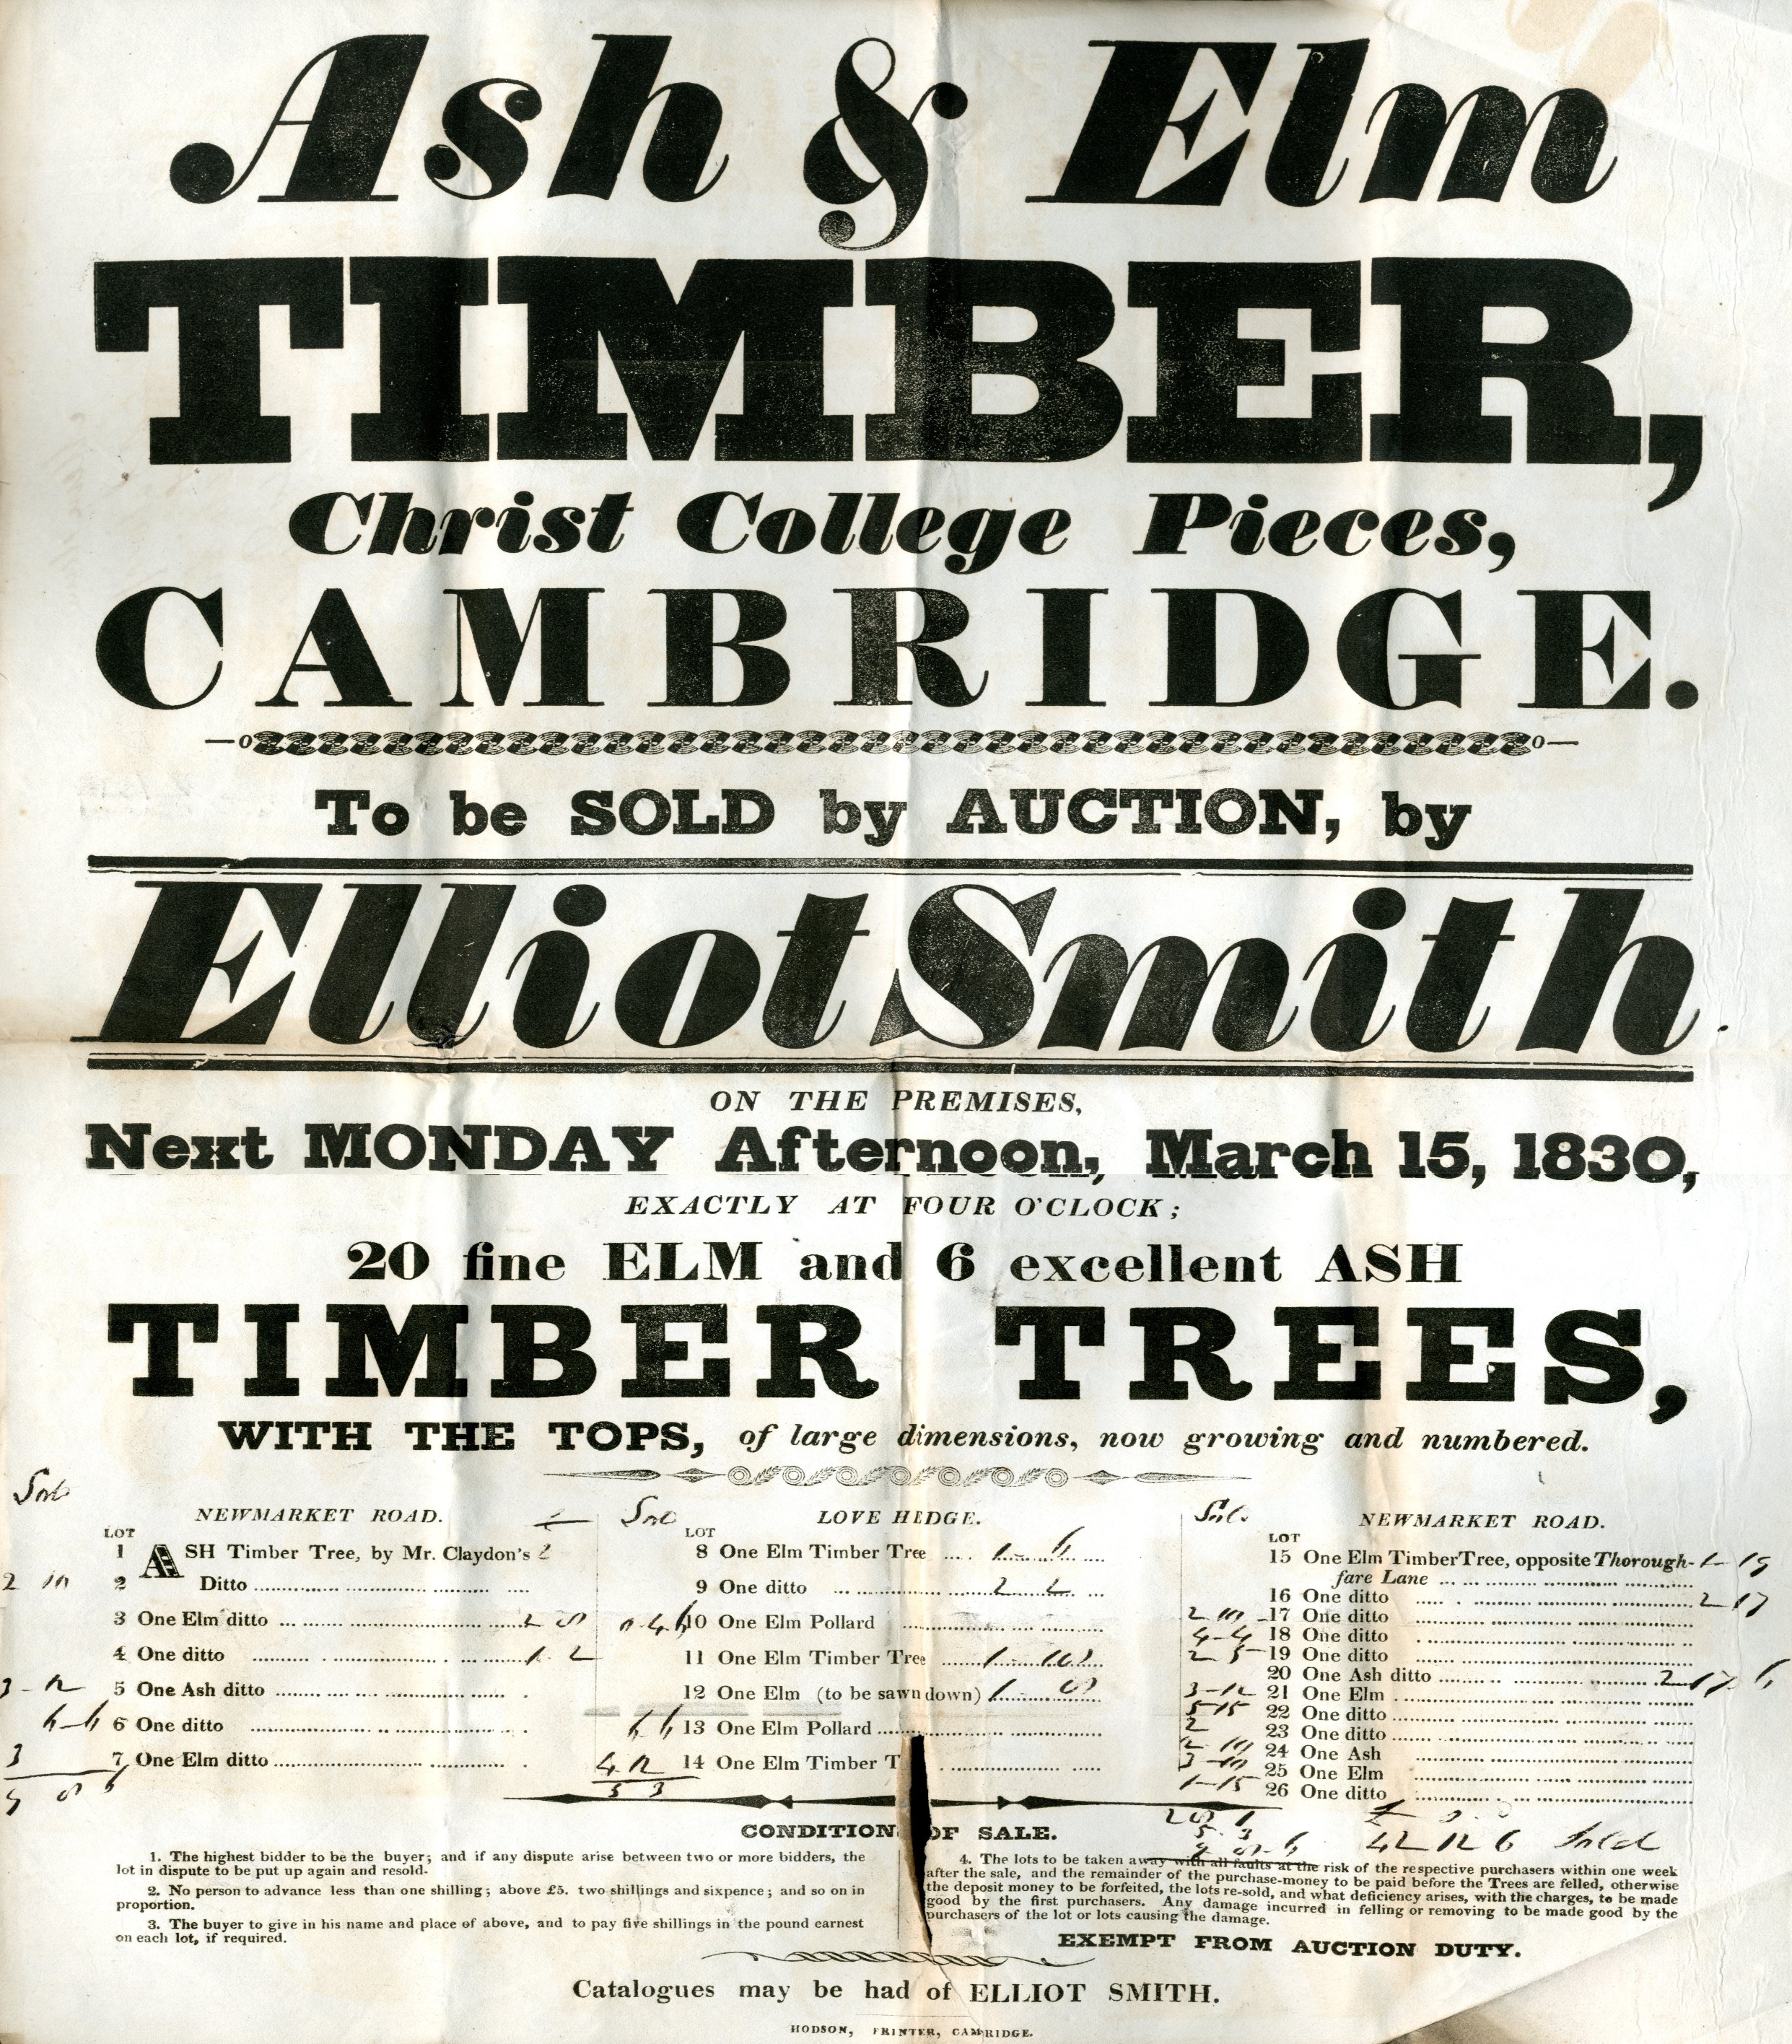 Ash & Elm
TIMBER,
Christ College Pieces,
CAMBRIDGE.
To be SOLD by AUCTION, by
Elliot Smith
ON THE PREMISES,
Next MONDAY Afternoon, March 15, 1830,
EXACTLY AT FOUR O'CLOCK;
20 fine ELM and 6 excellent ASH
TIMBER TREES,
WITH THE TOPS, of large dimensions, now growing and numbered.
NEWMARKET ROAD.
LOT
1 ASH Timber Tree, by Mr. Claydon's
2 Ditto
3 One Elm ditto
4 One ditto
5 One Ash ditto
6 One ditto
7 One Elm ditto
LOVE HEDGE.
LOT
8 One Elm Timber Tree
9 One ditto
10 One Elm Pollard
11 One Elm Timber Tree
12 One Elm (to be sawn down)
13 One Elm Pollard
14 One Elm Timber T
NEWMARKET ROAD.
LOT
15 One Elm Timber Tree, opposite Thorough-
fare Lane
16 One ditto
17 One ditto
18 One ditto
19 One ditto
20 One Ash ditto
21 One Elm
22 One ditto
23 One ditto
24 One Ash
25 One Elm
26 One ditto
42 12 6 Sold
CONDITION OF SALE.
1. The highest bidder to be the buyer; and if any dispute arise between two or more bidders, the
lot in dispute to be put up again and resold.
2. No person to advance less than one shilling; above £5. two shillings and sixpence; and so on in
proportion.
3. The buyer to give in his name and place of above, and to pay five shillings in the pound earnest
on each lot, if required.
4. The lots to be taken away with all faults at the risk of the respective purchasers within one week
after the sale, and the remainder of the purchase-money to be paid before the Trees are felled, otherwise
the deposit money to be forfeited, the lots re-sold, and what deficiency arises, with the charges, to be made
good by the first purchasers. Any damage incurred in felling or removing to be made good by the
purchasers of the lot or lots causing the damage.
EXEMPT FROM AUCTION DUTY.
Catalogues may be had of ELLIOT SMITH.
HODSON, PRINTER, CAMBRIDGE.